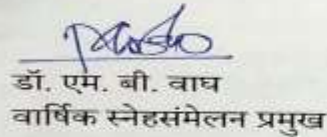 डॉ. एम. बी. वाघ
वार्षिक स्नेहसंमेलन प्रमुख